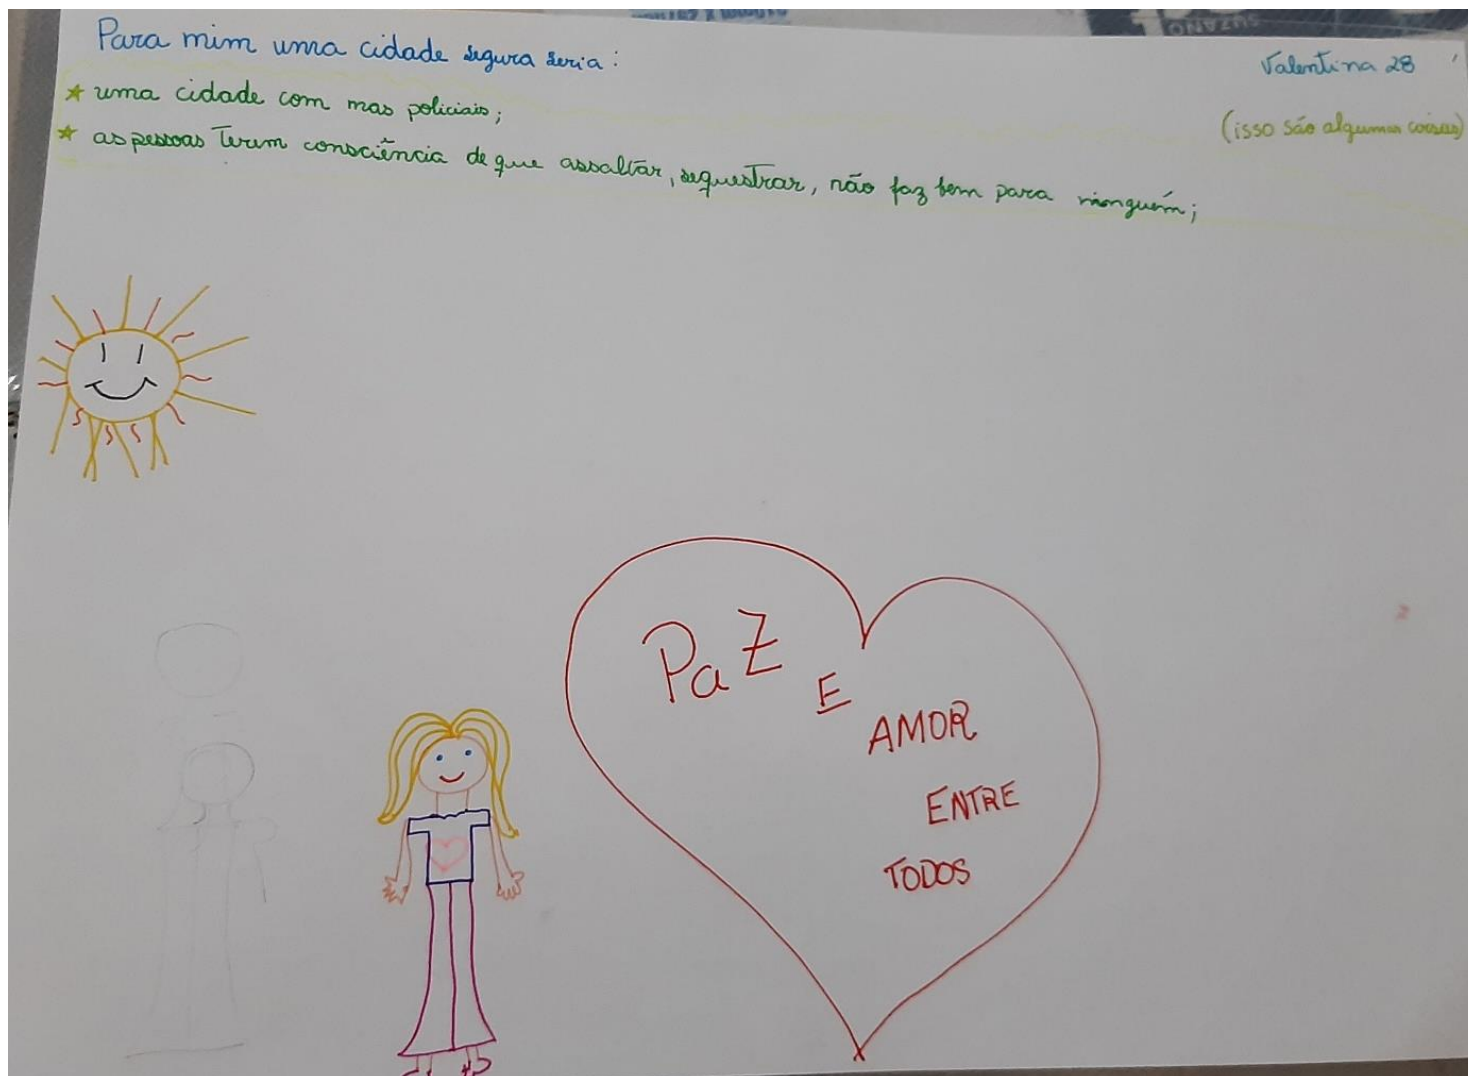 Para mim uma cidade segura seria:
Valentina 28
★ uma cidade com mas policiais;
(isso são algumas coisas)
★ as pessoas terem consciência de que assaltar, sequestrar, não faz bem para ninguém;
PaZ
E
AMOR
ENTRE
TODOS
SUZANO